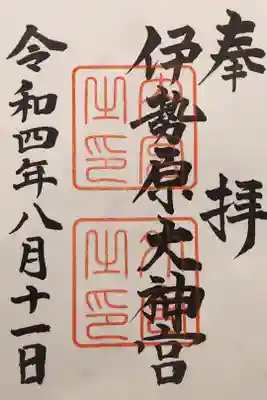 奉拝
伊勢原大神宮
令和四年八月十一日